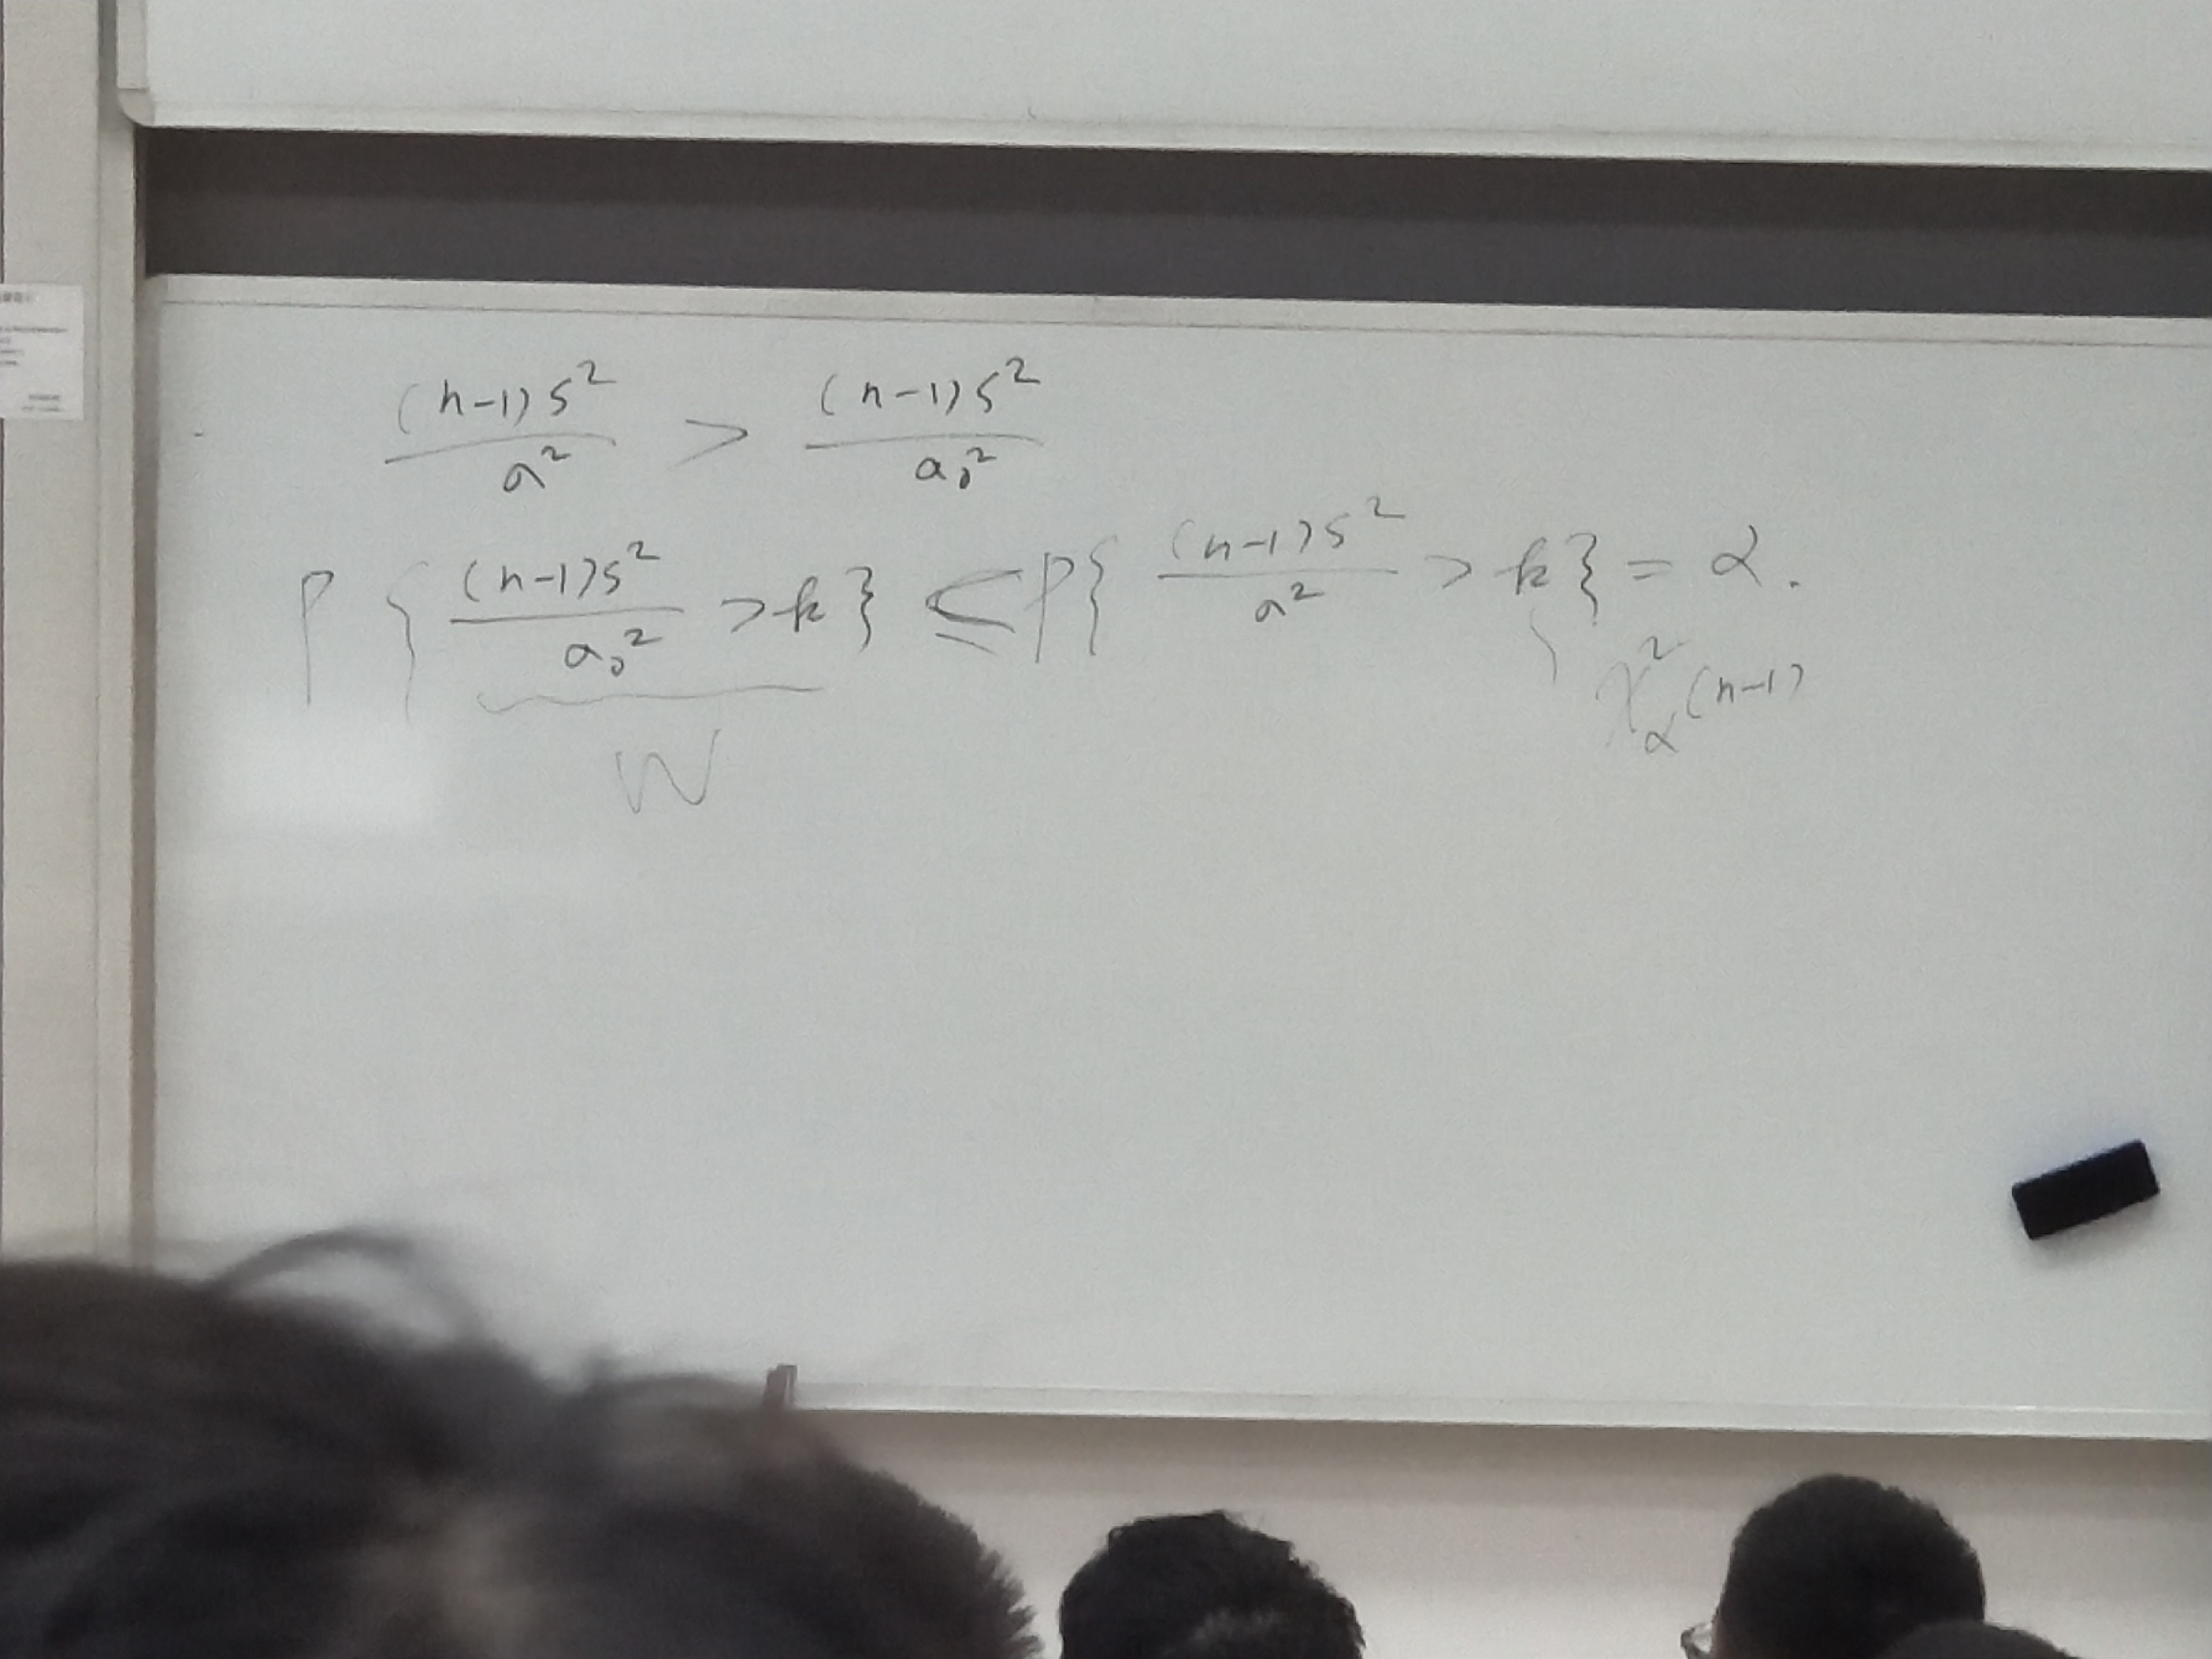 (n-1)S² / a² > (n-1)S² / a₀²
P{ (n-1)S² / a₀² > k } ≤ P{ (n-1)S² / a² > k } = α.
W
χ²_α(n-1)